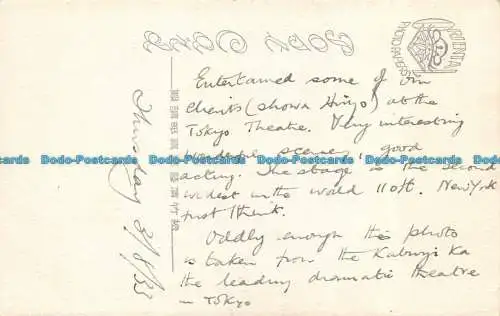 POST CARD
ORIENTAL
PHOTO PAPER
Entertained some of our
clients (Showa Hiryo) at the
Tokyo Theatre. Very interesting
wonderful scenes, good
acting. The stage is the second
widest in the world 110ft. New York
first I think.
Oddly enough this photo
is taken from the Kabuyi Ka
the leading dramatic theatre
in Tokyo
Thursday 31/8/33
Dodo-Postcards Dodo-Postcards Dodo-Postcards Dodo-Postcards Dodo-Postcards